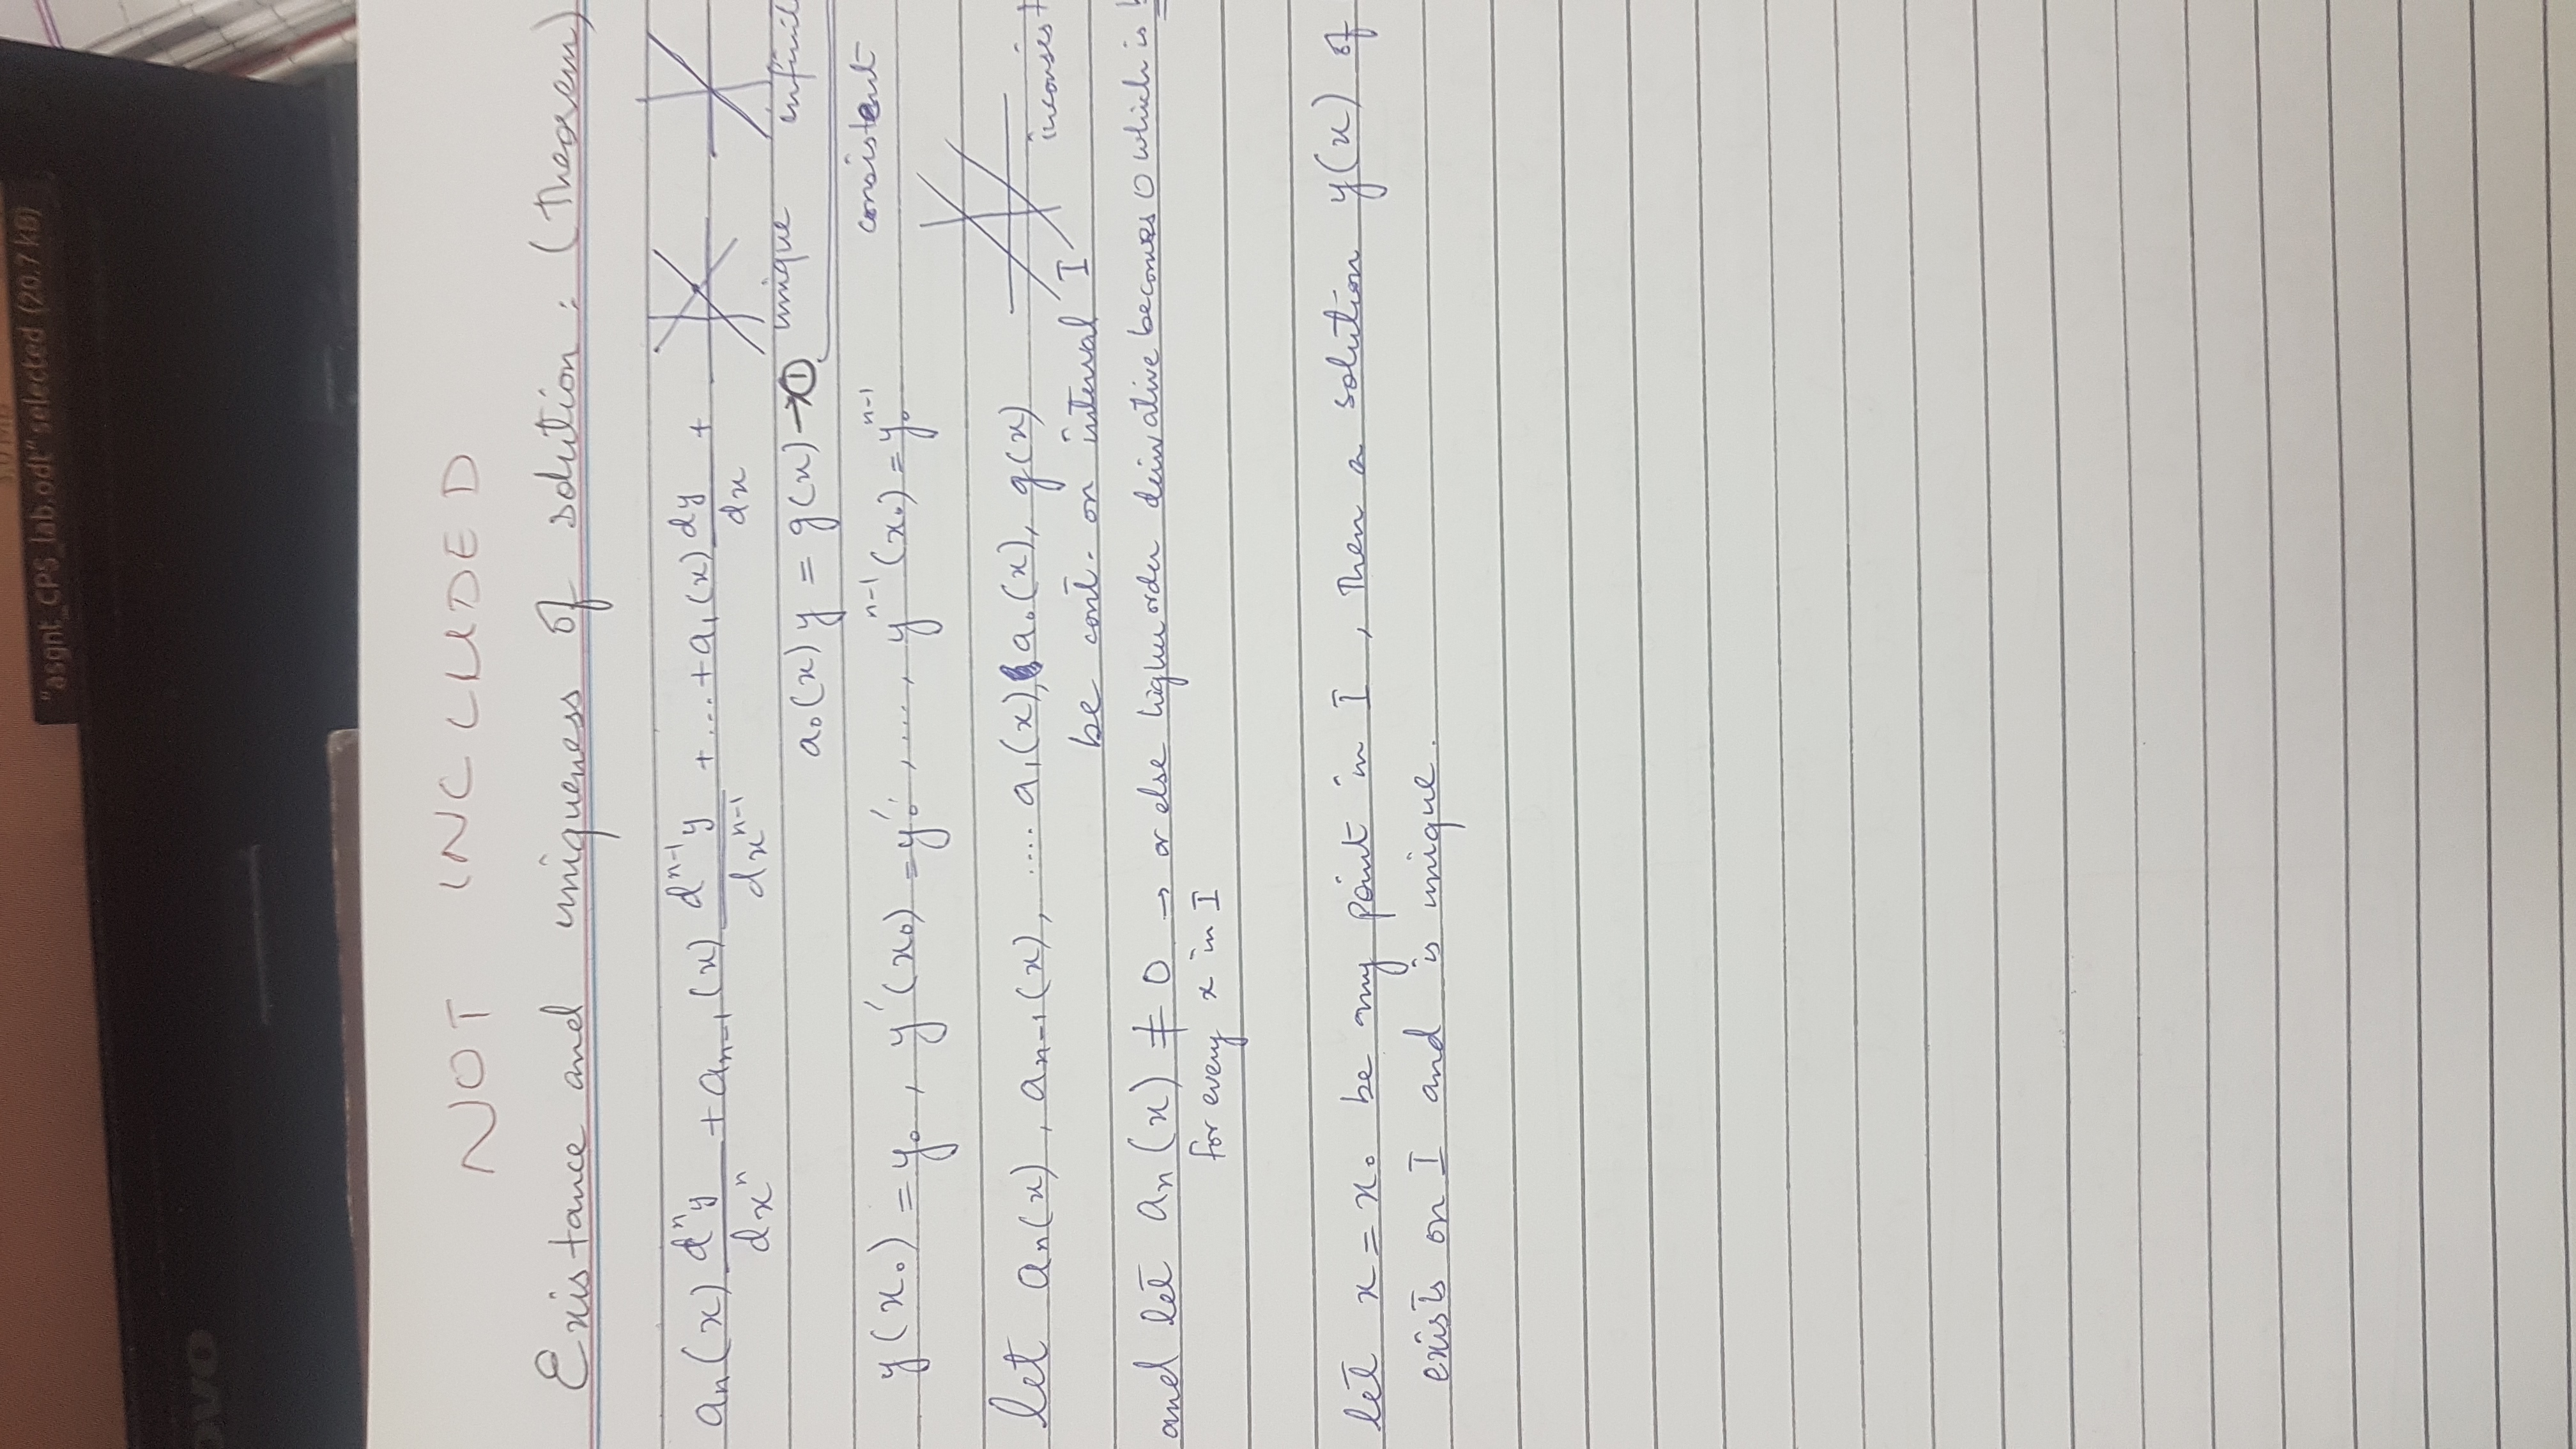 "asgnt_CPS_lab.odt" selected (20.7 kB)
NOT INCLUDED
Existance and uniqueness of solution : (Theorem)
aₙ(x) dⁿy/dxⁿ + aₙ₋₁(x) dⁿ⁻¹y/dxⁿ⁻¹ + ... + a₁(x) dy/dx +
a₀(x) y = g(x) → ①
unique
consistent
y(x₀) = y₀ , y′(x₀) = y₀′ , ...., yⁿ⁻¹(x₀) = y₀ⁿ⁻¹
let aₙ(x), aₙ₋₁(x), .... a₁(x), a₀(x), g(x)
be cont. on interval I
and let aₙ(x) ≠ 0 → or else higher order derivative becomes 0 which is
for every x in I
let x = x₀ be any point in I , then a solution y(x) of
exists on I and is unique.